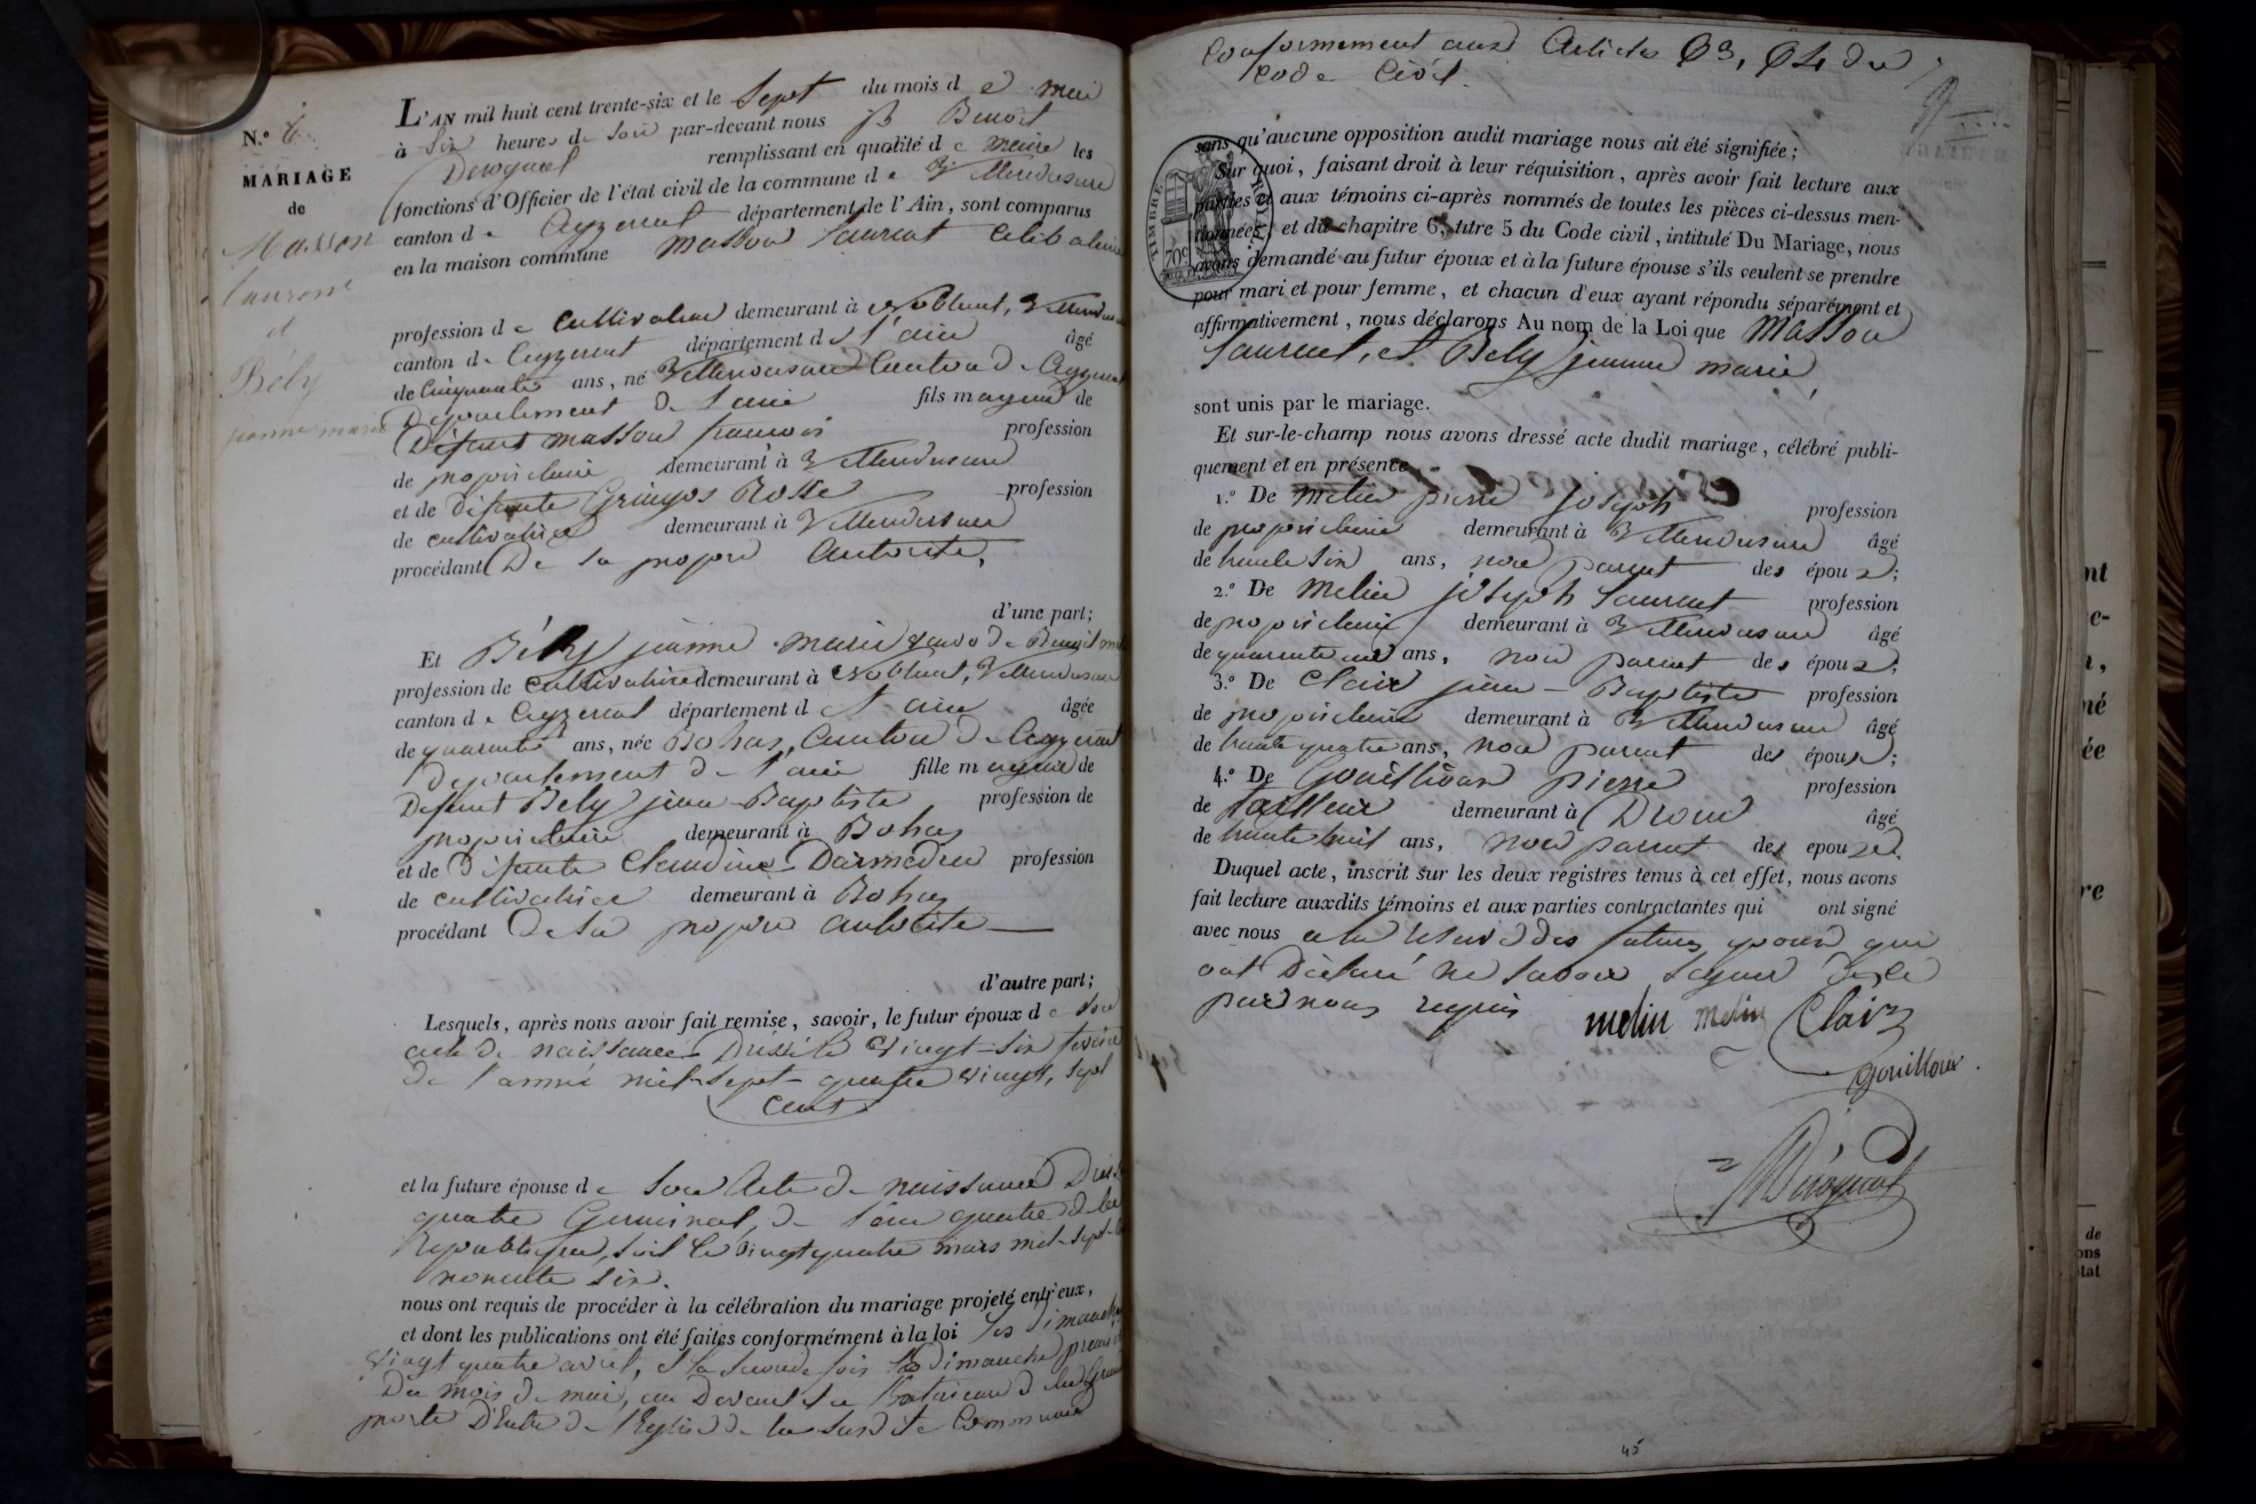 N.º 6
MARIAGE
de
Masson
laurent
et
Bély
jeanne marie
L'AN mil huit cent trente-six et le Sept du mois d e mai
à Six heures du Soir par-devant nous Benoit
Derognat remplissant en qualité d e maire les
fonctions d'Officier de l'état civil de la commune d e Villereversure
canton d e Ceyzeriat département de l'Ain, sont comparus
en la maison commune Masson Laurent Celibataire
profession d e Cultivateur demeurant à Noblens, Villereversure
canton d e Ceyzeriat département d e l'ain âgé
de Cinquante ans, né Villereversure Canton de Ceyzeriat
Departement de l'ain fils majeur de
Défunt Masson francois profession
de propriétaire demeurant à Villereversure
et de défunte Rosse profession
de cultivatrice demeurant à Villereversure
procédant De sa propre autorité,
d'une part;
Et Bély jeanne marie veuve de Benoit
profession de Cultivatrice demeurant à Noblens, Villereversure
canton d e Ceyzeriat département d e l'ain âgée
de quarante ans, née Bohas, Canton de Ceyzeriat
Departement de l'ain fille majeure de
Défunt Bely jean Baptiste profession de
propriétaire demeurant à Bohas
et de défunte Claudine Darmedru profession
de cultivatrice demeurant à Bohas
procédant De sa propre autorité
d'autre part;
Lesquels, après nous avoir fait remise, savoir, le futur époux d e son
acte de naissance Dressé le vingt-six fevrier
de l'année mil-sept-quatre vingt, sept
Cent
et la future épouse d e son Acte de naissance Dressé
quatre Germinal, de l'an quatre de la
Republique, soit le vingt quatre mars mil-sept-
nonente six.
nous ont requis de procéder à la célébration du mariage projeté entr'eux,
et dont les publications ont été faites conformément à la loi les Dimanches
vingt quatre avril, et la seconde fois le Dimanche premier
Du mois de mai, au Devant de la grande
porte D'Entrée de l'Eglise de la susdite Commune
Conformement aux Articles 63, 64 du
Code Civil.
TIMBRE ROYAL
70c
sans qu'aucune opposition audit mariage nous ait été signifiée;
Sur quoi, faisant droit à leur réquisition, après avoir fait lecture aux
parties et aux témoins ci-après nommés de toutes les pièces ci-dessus men-
tionnées, et du chapitre 6, titre 5 du Code civil, intitulé Du Mariage, nous
avons demandé au futur époux et à la future épouse s'ils veulent se prendre
pour mari et pour femme, et chacun d'eux ayant répondu séparément et
affirmativement, nous déclarons Au nom de la Loi que Masson
Laurent, et Bely jeanne marie,
sont unis par le mariage.
Et sur-le-champ nous avons dressé acte dudit mariage, célébré publi-
quement et en présence
1.º De Melin pierre joseph profession
de propriétaire demeurant à Villereversure âgé
de trente six ans, non parent des époux;
2.º De Melin joseph Laurent profession
de propriétaire demeurant à Villereversure âgé
de quarante ans, non parent des époux;
3.º De Clair jean-Baptiste profession
de propriétaire demeurant à Villereversure âgé
de trente quatre ans, non parent des époux;
4.º De Gouilloux pierre profession
de tailleur demeurant à Drom âgé
de trente huit ans, non parent des epoux.
Duquel acte, inscrit sur les deux registres tenus à cet effet, nous avons
fait lecture auxdits témoins et aux parties contractantes qui ont signé
avec nous a la réserve des futurs époux qui
ont Déclaré ne savoir signer de ce
par nous requis
melin melin Clair
gouilloux
Dérognat
45